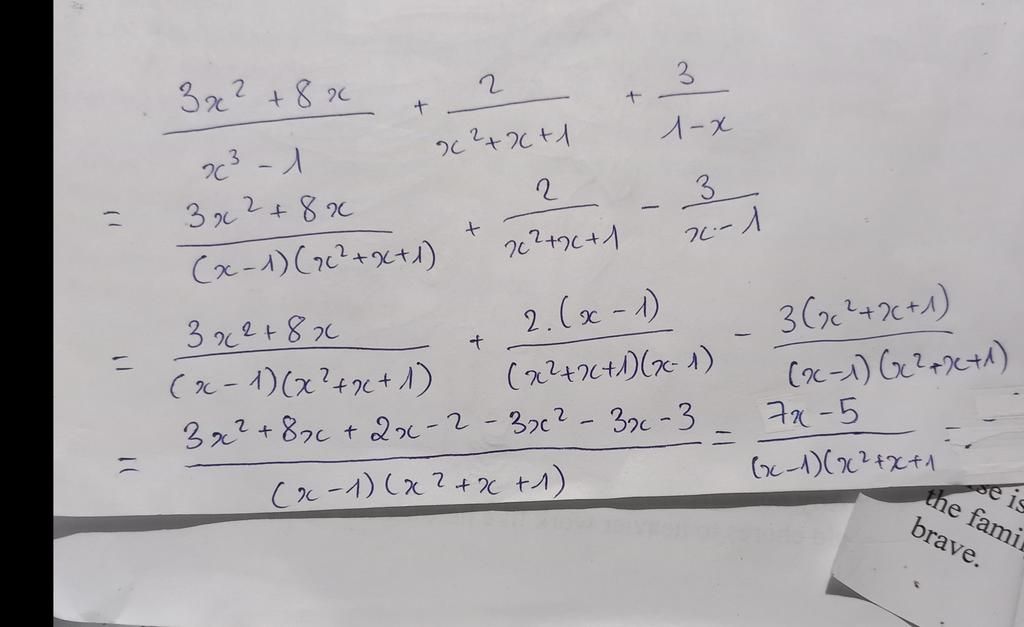 3x² + 8x / x³ - 1 + 2 / x² + x + 1 + 3 / 1 - x
= 3x² + 8x / (x - 1)(x² + x + 1) + 2 / x² + x + 1 - 3 / x - 1
= 3x² + 8x / (x - 1)(x² + x + 1) + 2.(x - 1) / (x² + x + 1)(x - 1) - 3(x² + x + 1) / (x - 1)(x² + x + 1)
= 3x² + 8x + 2x - 2 - 3x² - 3x - 3 / (x - 1)(x² + x + 1) = 7x - 5 / (x - 1)(x² + x + 1 =
is
the
brave.